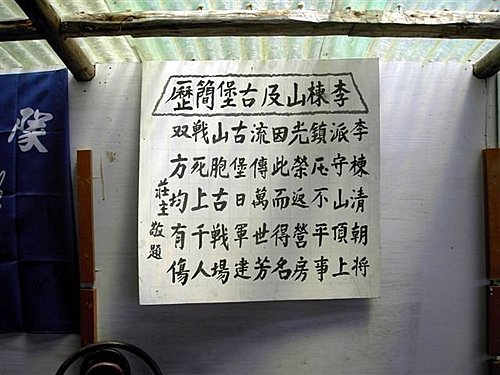 李棟山及古堡簡歷
李棟清朝將
派守山頂上
鎮压不平事
光榮返營房
因此而得名
流傳萬世芳
古堡日軍建
山胞古戰場
戰死上千人
双方均有傷
莊主敬題